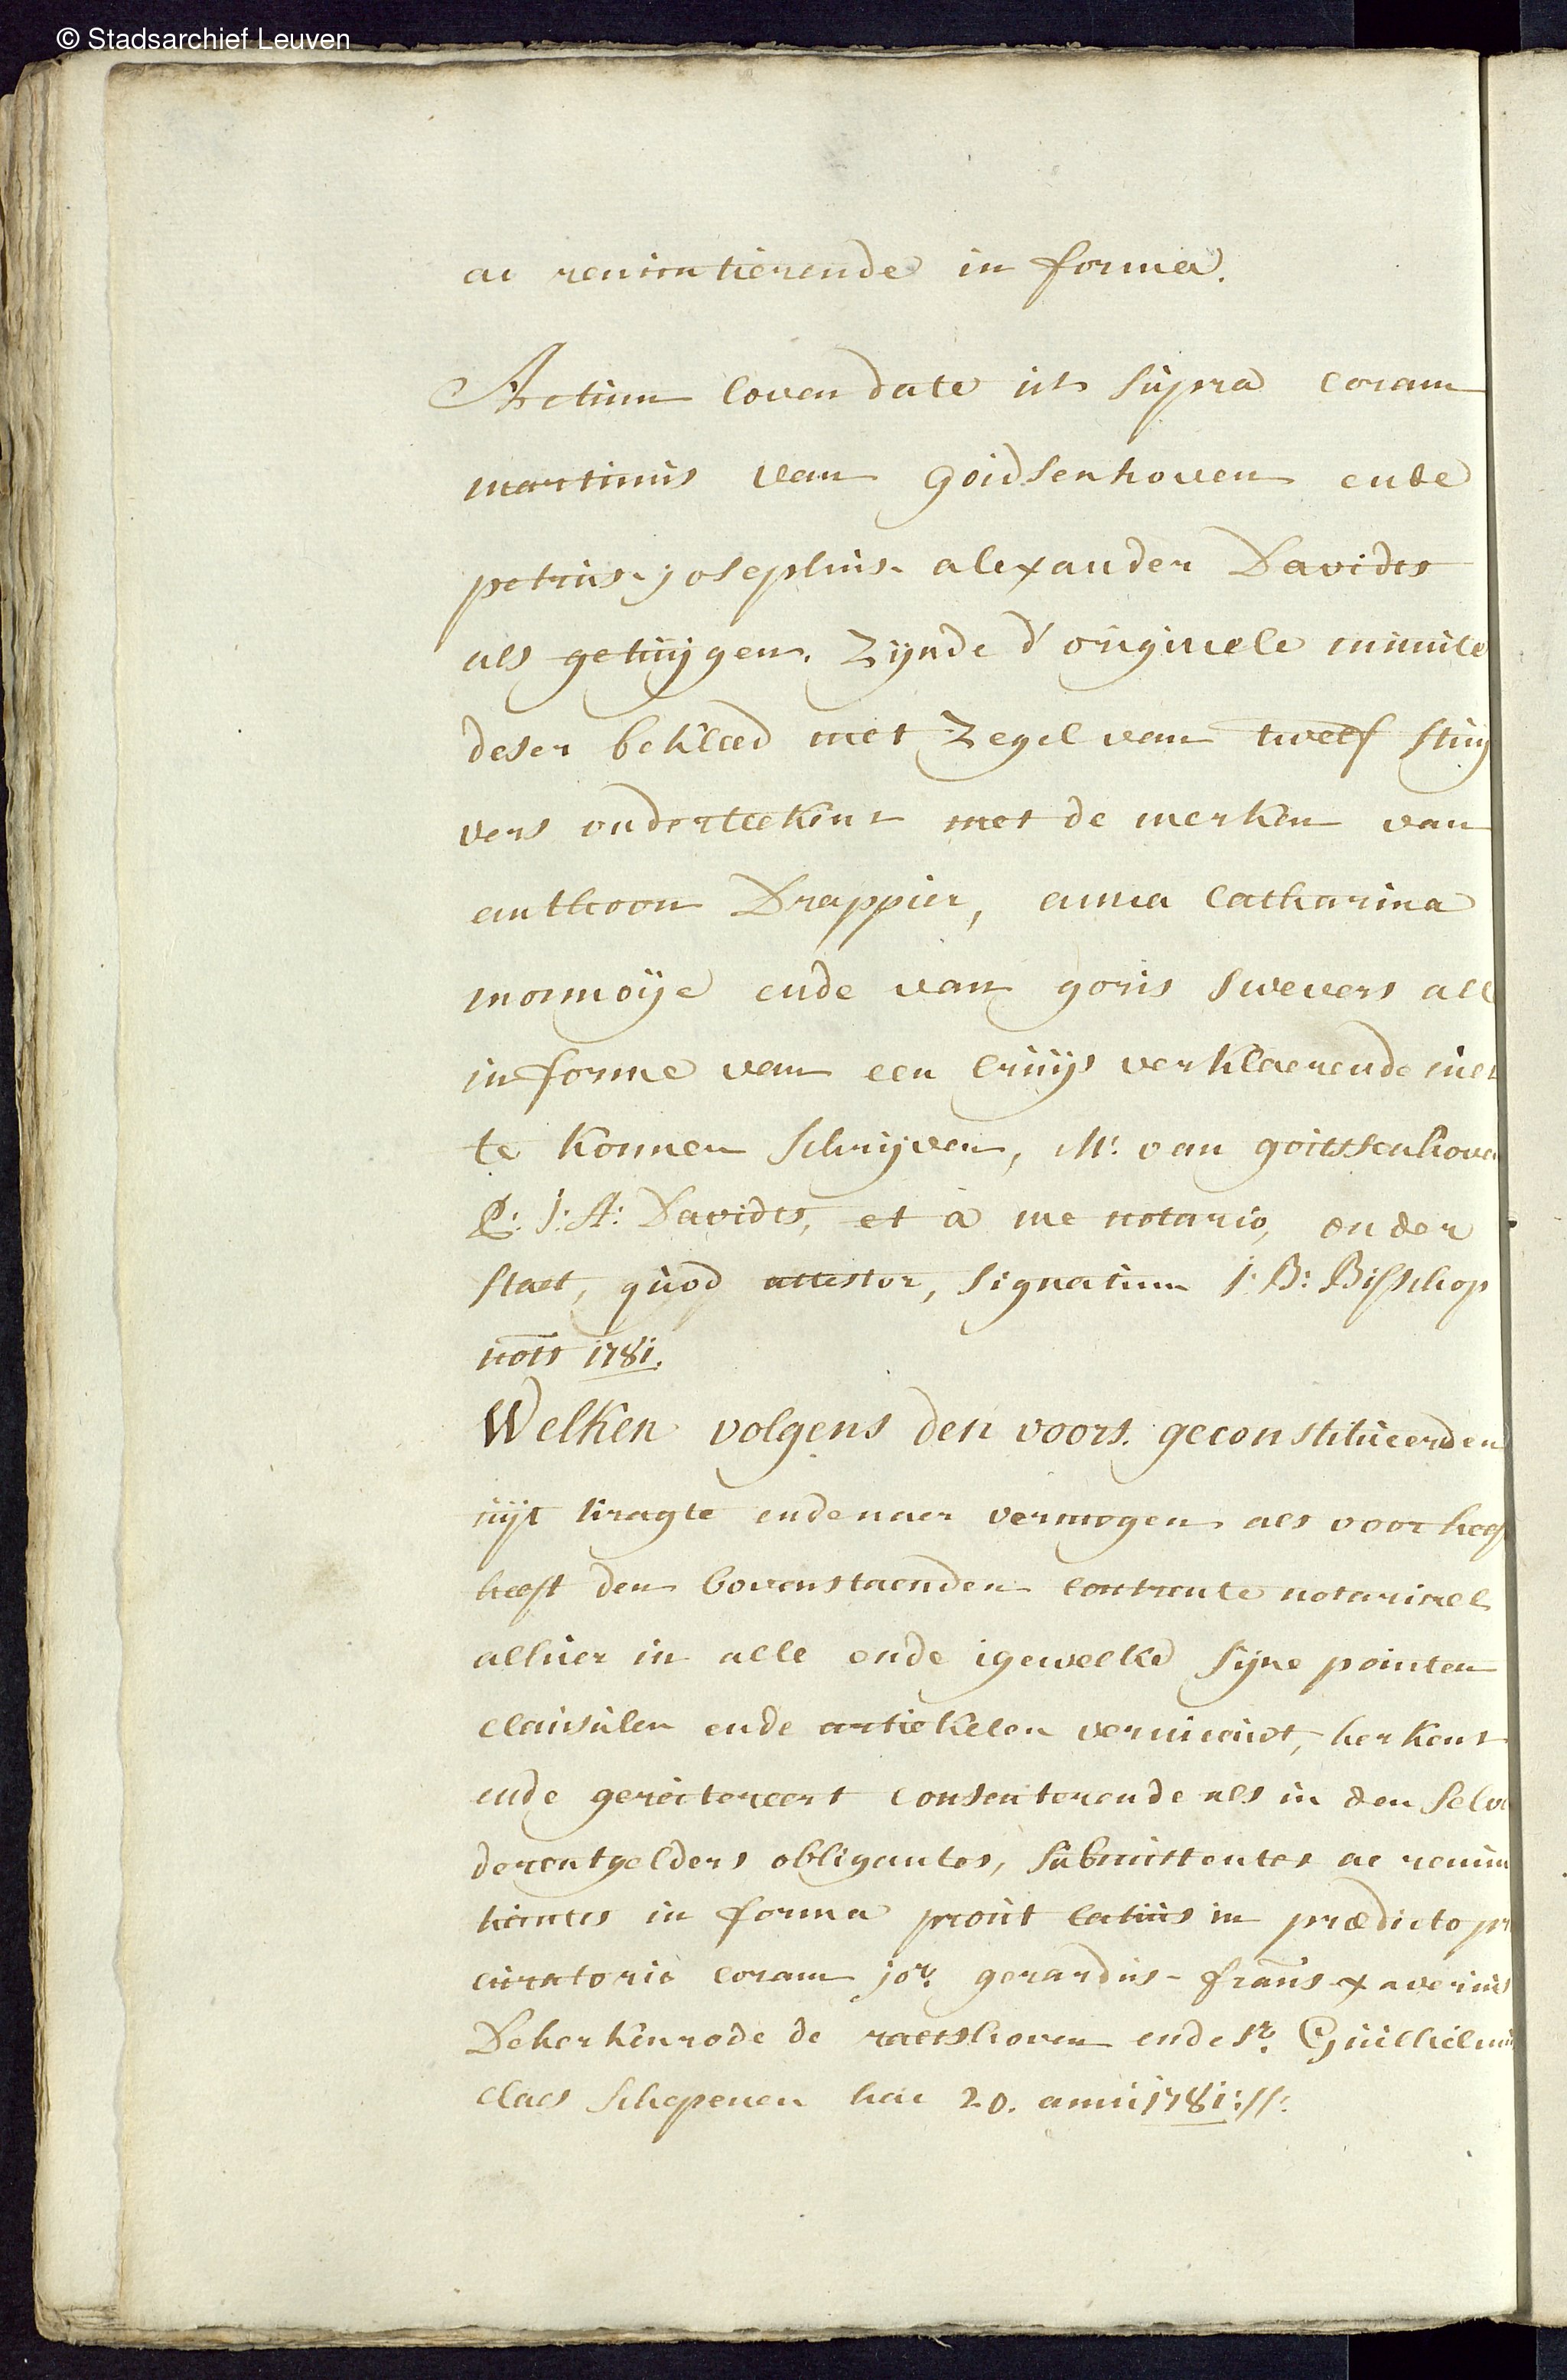 © Stadsarchief Leuven
ac renuntierende in forma.
Actum loven date ut supra coram
martinus van Goidsenhoven ende
petrus josephus alexander Davidts
als getuijgen. Zijnde d'originele minute
deser bekleed met Zegel van twelf stuij
vers onderteekent met de merken van
anthoon Drappier, anna Catharina
monmoije ende van goris swevers all
in forme van een cruijs verklaerende niet
te konnen schrijven, M: van goitssenhoven
P: J: A: Davidts, et à me notario, onder
staet, quod attestor, signatum J: B: Bisschop
nots 1781.
Welken volgens den voors. geconstitueerden
uijt kragte ende naer vermogen als voor heeft
heeft den bovenstaenden contracte notarieel
alhier in alle ende igewelke sijne pointen
clausulen ende artiekelen vernieuwt, herkent
ende gereïtereert consenterende als in den selven
derentgelders obligantes, submittentes ac renun
tiantes in forma prout latius in prædicto pro
curatorio coram jor. gerardus-frans-xaverius
Dekerkenrode de raetshoven ende Sr. Guillielmus
claes schepenen hac 20. annii 1781://: